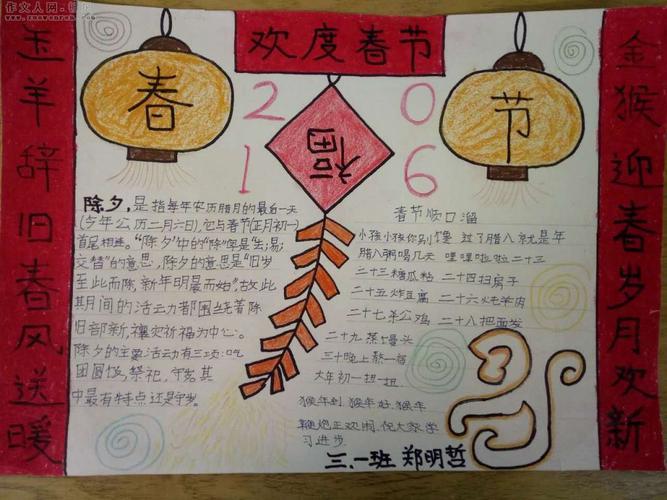 作文人网·
欢度春节
玉羊辞旧春风送暖
金猴迎春岁月欢新
春
节
2016
福
除夕,是指每年农历腊月的最后一天
(今年公历二月六日),它与春节(正月初一)
首尾相连。“除夕”中的“除”字是“去;易;
交替”的意思,除夕的意思是“旧岁
至此而除,新年明晨而始”故此
其期间的活动力都围绕着除
旧部新,禳灾祈福为中心。
除夕的主要活动有三项:吃
团圆饭,祭祀,守岁。其
中最有特点还是守岁。
春节顺口溜
小孩小孩你别馋 过了腊八就是年
腊八粥喝几天 哩哩啦啦二十三
二十三糖瓜粘 二十四扫房子
二十五炸豆腐 二十六炖羊肉
二十七羊公鸡 二十八把面发
二十九蒸馒头
三十晚上熬一宿
大年初一扭一扭
猴年到,猴年好,猴年
鞭炮正欢闹,祝大家学
习进步
三、一班 郑明哲